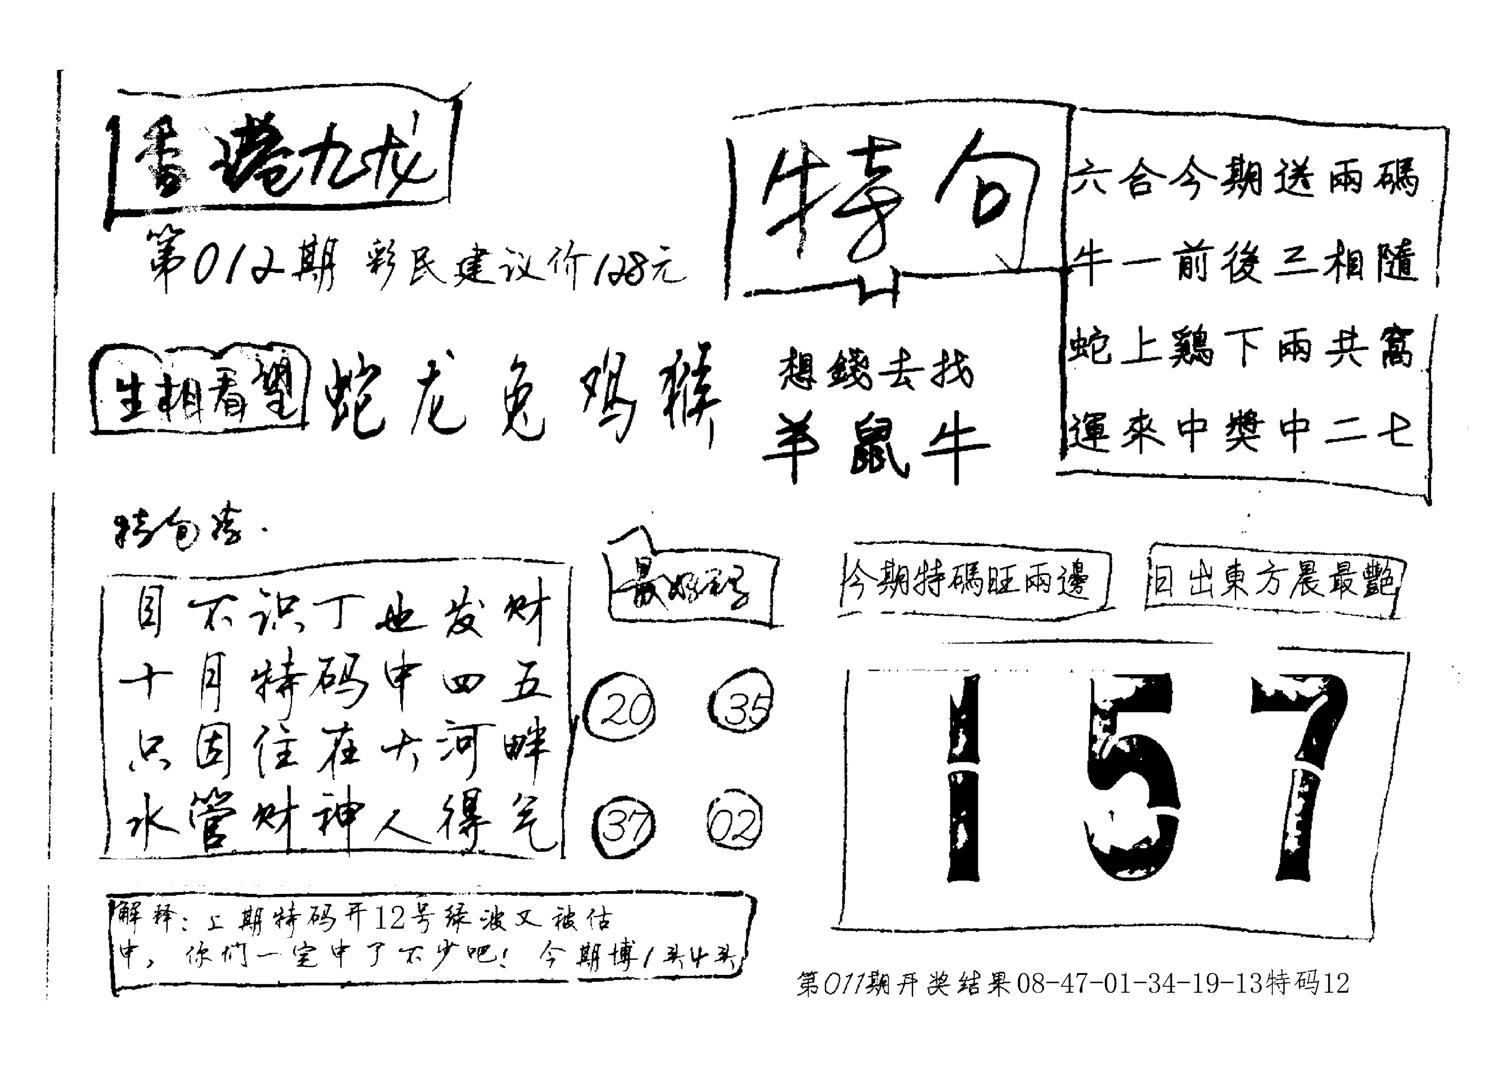 香港九龙
第012期 彩民建议价128元
特句
六合今期送兩碼
牛一前後三相隨
蛇上鷄下兩共窩
運來中獎中二七
生相看望 蛇龙兔鸡猴
想錢去找
羊鼠牛
目不识丁也发财
十月特码中四五
只因住在大河畔
水管财神人得气
最好码
20 35
37 02
今期特碼旺兩邊
日出東方晨最艷
157
解释:上期特码开12号绿波又被估
中,你们一定中了不少吧!今期博1头4头
第011期开奖结果08-47-01-34-19-13特码12